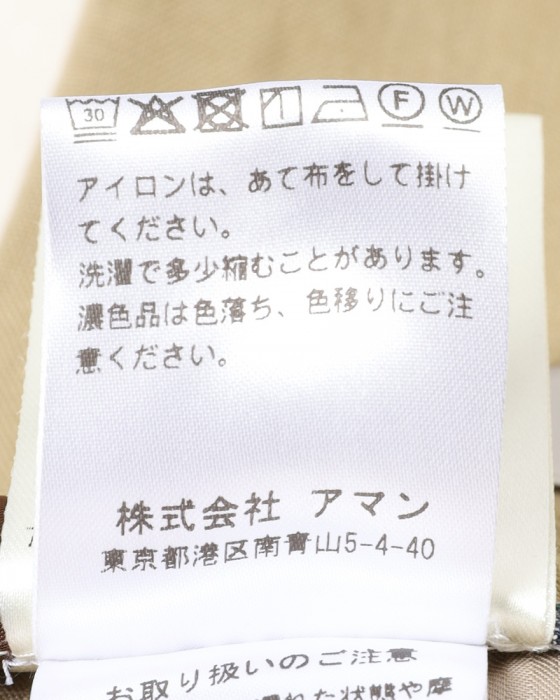 30 F W
アイロンは、あて布をして掛け
てください。
洗濯で多少縮むことがあります。
濃色品は色落ち、色移りにご注
意ください。
株式会社 アマン
東京都港区南青山5-4-40
お取り扱いのご注意
た状態や摩